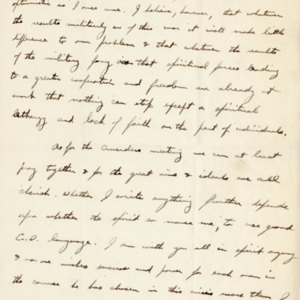 optimistic as I once was. I believe, however, that whatever
the results militarily as of this war it will make little
difference to our problem & that whatever the results
of the military fray is that spiritual forces leading
to a greater cooperation and freedom are already at
work that nothing can stop except a spiritual
lethargy and lack of faith on the part of individuals.
As for the Amenders meeting we can at least
pray together & for the great aims & ideals we all
cherish. Whether I write anything further depends
upon whether the spirit so moves me, to use good
C.O. language. I am with you all in spirit anyway
& no one wishes success and power for each man in
the course he has chosen in this crisis more than I